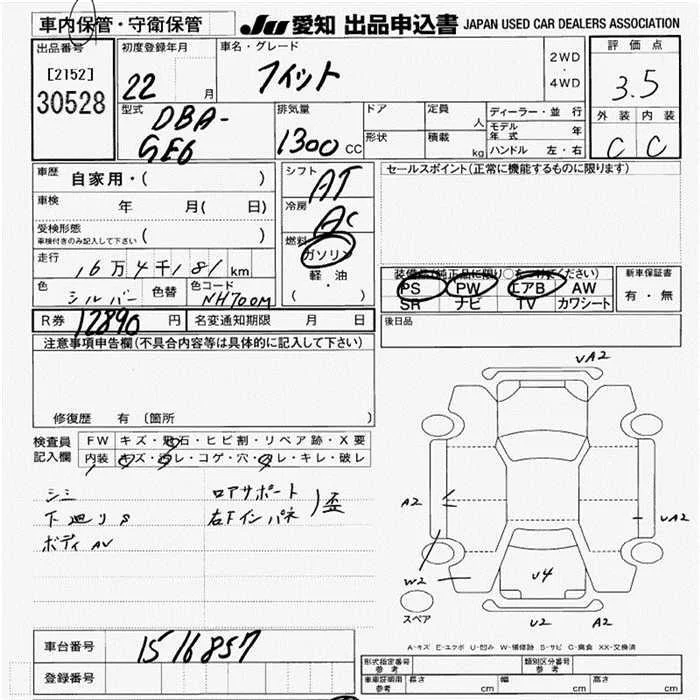 車内保管・守衛保管
JU 愛知 出品申込書 JAPAN USED CAR DEALERS ASSOCIATION
出品番号
[2152]
30528
初度登録年月
22 月
車名・グレード
フィット
2WD
・
4WD
評価点
3.5
外装 内装
C C
型式
DBA-
GE6
排気量
1300 CC
ドア
形状
定員
人
積載
kg
ディーラー・並行
モデル年式 年
ハンドル 左・右
車歴
自家用・( )
車検
年 月( 日)
受検形態
車検付きのみ記入して下さい ( )
走行
16万4千181km
色
シルバー
色替
色コード
NH700M
シフト
AT
冷房
AC
燃料
ガソリン
軽・油
( )
セールスポイント(正常に機能するものに限ります)
装備品(純正品に限り○をつけてください)
PS PW エアB AW
SR ナビ TV カワシート
新車保証書
有・無
R券 12890 円 名変通知期限 月 日
後日品
注意事項申告欄(不具合内容等は具体的に記入して下さい)
修復歴 有 〔箇所
検査員
記入欄
FW キズ・飛石・ヒビ割・リペア跡・X要
内装 キズ・汚レ・コゲ・穴・スレ・キレ・破レ
シミ
下廻りS
ボディAV
ロアサポート
右下インパネ
)歪
VA2
A2
VA2
W2
V4
スペア
U2
A2
車台番号
1516857
登録番号
A-キズ E-エクボ U-凹み W-補修跡 S-サビ C-腐食 XX-交換済
形式指定番号
参考
類別区分番号
参考
車庫証明用
参考
長さ cm 幅 cm 高さ cm